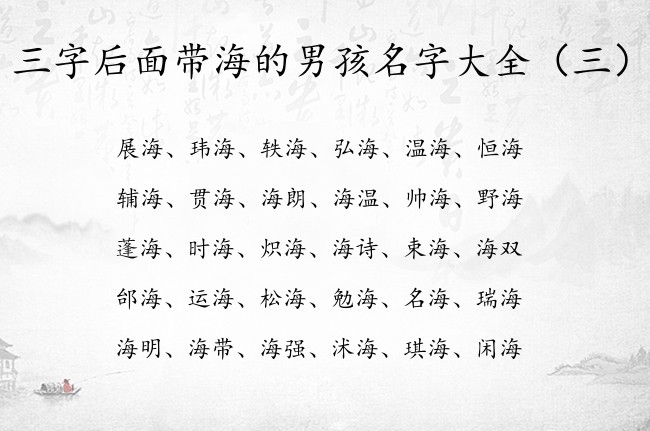 三字后面带海的男孩名字大全（三）
展海、玮海、轶海、弘海、温海、恒海
辅海、贯海、海朗、海温、帅海、野海
蓬海、时海、炽海、海诗、束海、海双
邰海、运海、松海、勉海、名海、瑞海
海明、海带、海强、沭海、琪海、闲海